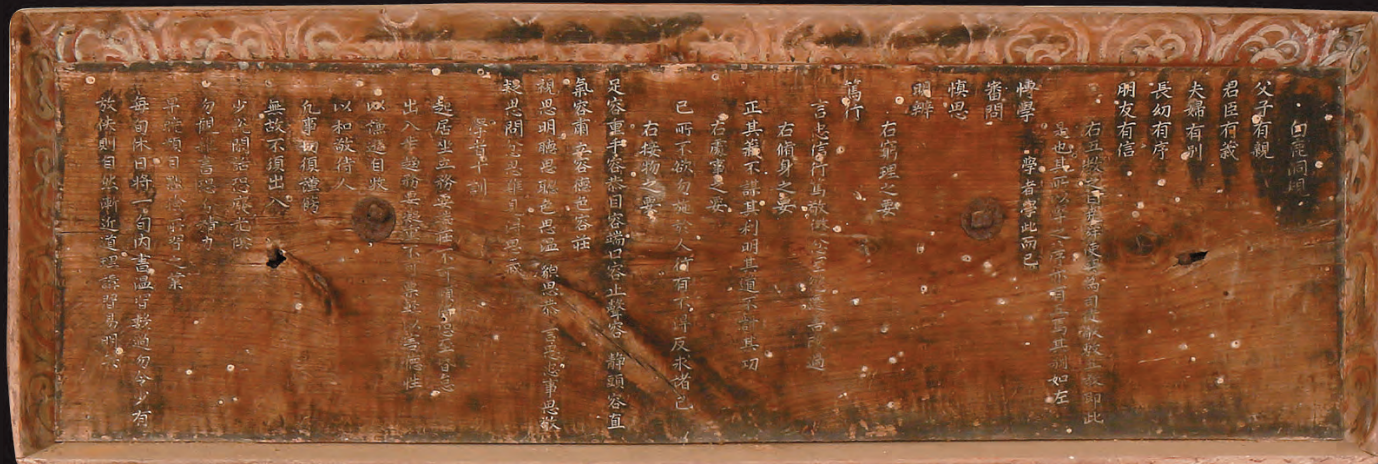 白鹿洞規
父子有親
君臣有義
夫婦有別
長幼有序
朋友有信
右五教之目堯舜使契爲司徒敬敷五教卽此
是也其所以學之序亦有五焉其別如左
博學 學者學此而已
審問
慎思
明辨
右窮理之要
篤行
言忠信行篤敬懲忿窒慾遷善改過
右脩身之要
正其義不謀其利明其道不計其功
右處事之要
己所不欲勿施於人行有不得反求諸己
右接物之要
足容重手容恭目容端口容止聲容靜頭容直
氣容肅立容德色容莊
視思明聽思聰色思溫貌思恭言思忠事思敬
疑思問忿思難見得思義
學有十訓
起居坐立務要端莊不可傾倚恐至昏怠
出入步趨務要凝重不可票輕以害德性
以謙遜自牧
以和敬待人
凡事切須謹飭
無故不須出入
少說閒話恐廢光陰
勿觀雜書恐分精力
早晩頻自點檢所習之業
每旬休日將一旬內書溫習數過勿令少有
放佚則自然漸近道理講習易明矣